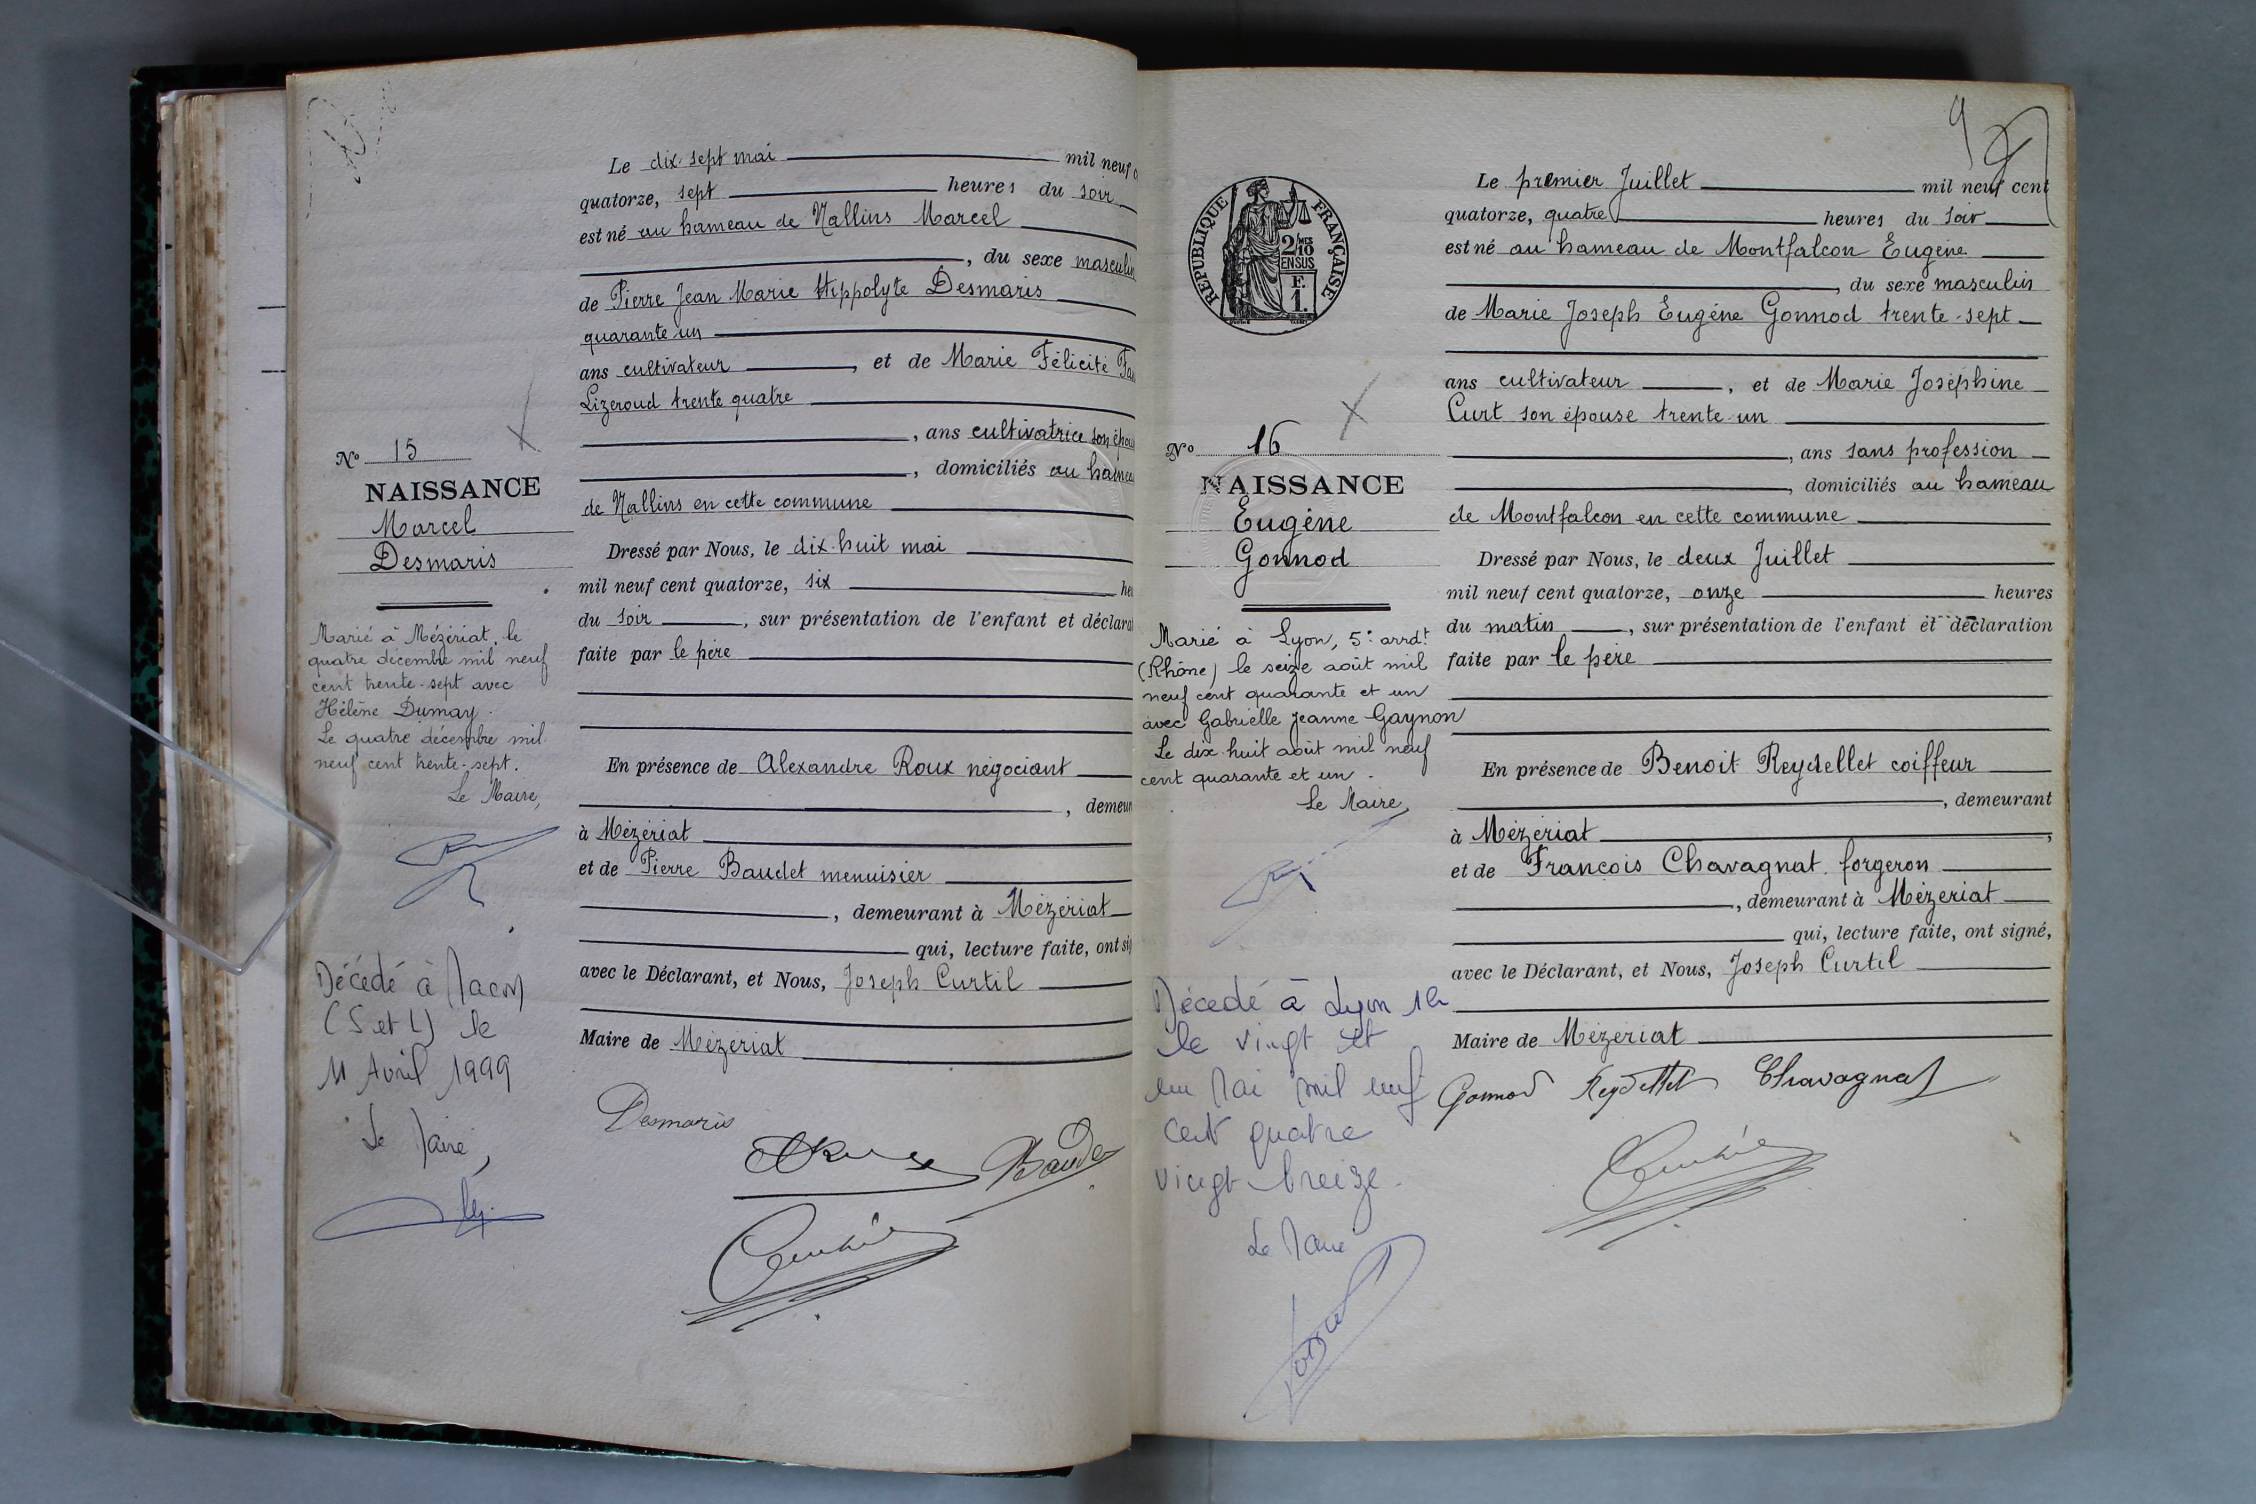 Le dix-sept mai mil neuf
quatorze, sept heures du soir
est né au hameau de Nallins Marcel
, du sexe masculin
de Pierre Jean Marie Hippolyte Desmaris
quarante un
ans cultivateur , et de Marie Félicité
Lizeroud trente quatre
, ans cultivatrice son
, domiciliés au
de Nallins en cette commune
Dressé par Nous, le dix-huit mai
mil neuf cent quatorze, six
du soir , sur présentation de l'enfant et
faite par le père
En présence de Alexandre Roux négociant
,
à Mézériat
et de Pierre Baudet menuisier
, demeurant à Mézériat
qui, lecture faite, ont
avec le Déclarant, et Nous, Joseph Curtil
Maire de Mézériat
Desmaris
Nº 15
NAISSANCE
Marcel
Desmaris
Marié à Mézériat, le
quatre décembre mil neuf
cent trente-sept avec
Hélène Dumay.
Le quatre décembre mil
neuf cent trente-sept.
Le Maire,
Décédé à Macon
(S et L) le
11 Avril 1999
Le Maire,
9
RÉPUBLIQUE FRANÇAISE
2/10 MES
EN SUS
F.
1.
Nº 16
NAISSANCE
Eugène
Gonnod
Marié à Lyon, 5e arrdt
(Rhône) le seize août mil
neuf cent quarante et un
avec Gabrielle Jeanne Gaynon
Le dix-huit août mil neuf
cent quarante et un.
Le Maire,
Décédé à Lyon
le vingt et
un Mai mil neuf
cent quatre
vingt treize.
Le Maire
Le premier Juillet mil neuf cent
quatorze, quatre heures du soir
est né au hameau de Montfalcon Eugène
, du sexe masculin
de Marie Joseph Eugéne Gonnod trente-sept
ans cultivateur , et de Marie Joséphine
Curt son épouse trente-un
, ans sans profession
, domiciliés au hameau
de Montfalcon en cette commune
Dressé par Nous, le deux Juillet
mil neuf cent quatorze, onze heures
du matin , sur présentation de l'enfant et déclaration
faite par le père
En présence de Benoit Reydellet coiffeur
, demeurant
à Mézériat ,
et de François Chavagnat forgeron
, demeurant à Mézériat
qui, lecture faite, ont signé,
avec le Déclarant, et Nous, Joseph Curtil
Maire de Mézériat
Gonnod Reydellet Chavagnat